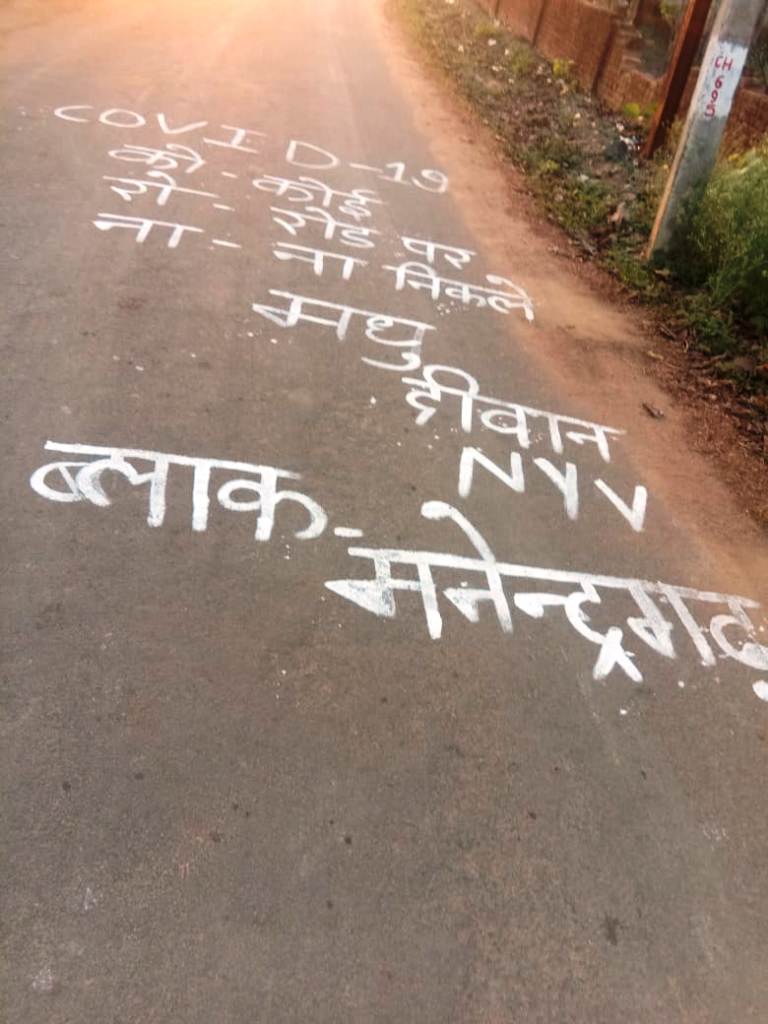 COVID-19
को - कोई
रो - रोड पर
ना - ना निकले
मधु
दीवान
NYV
ब्लाक -
मनेन्द्रगढ़
CH
605